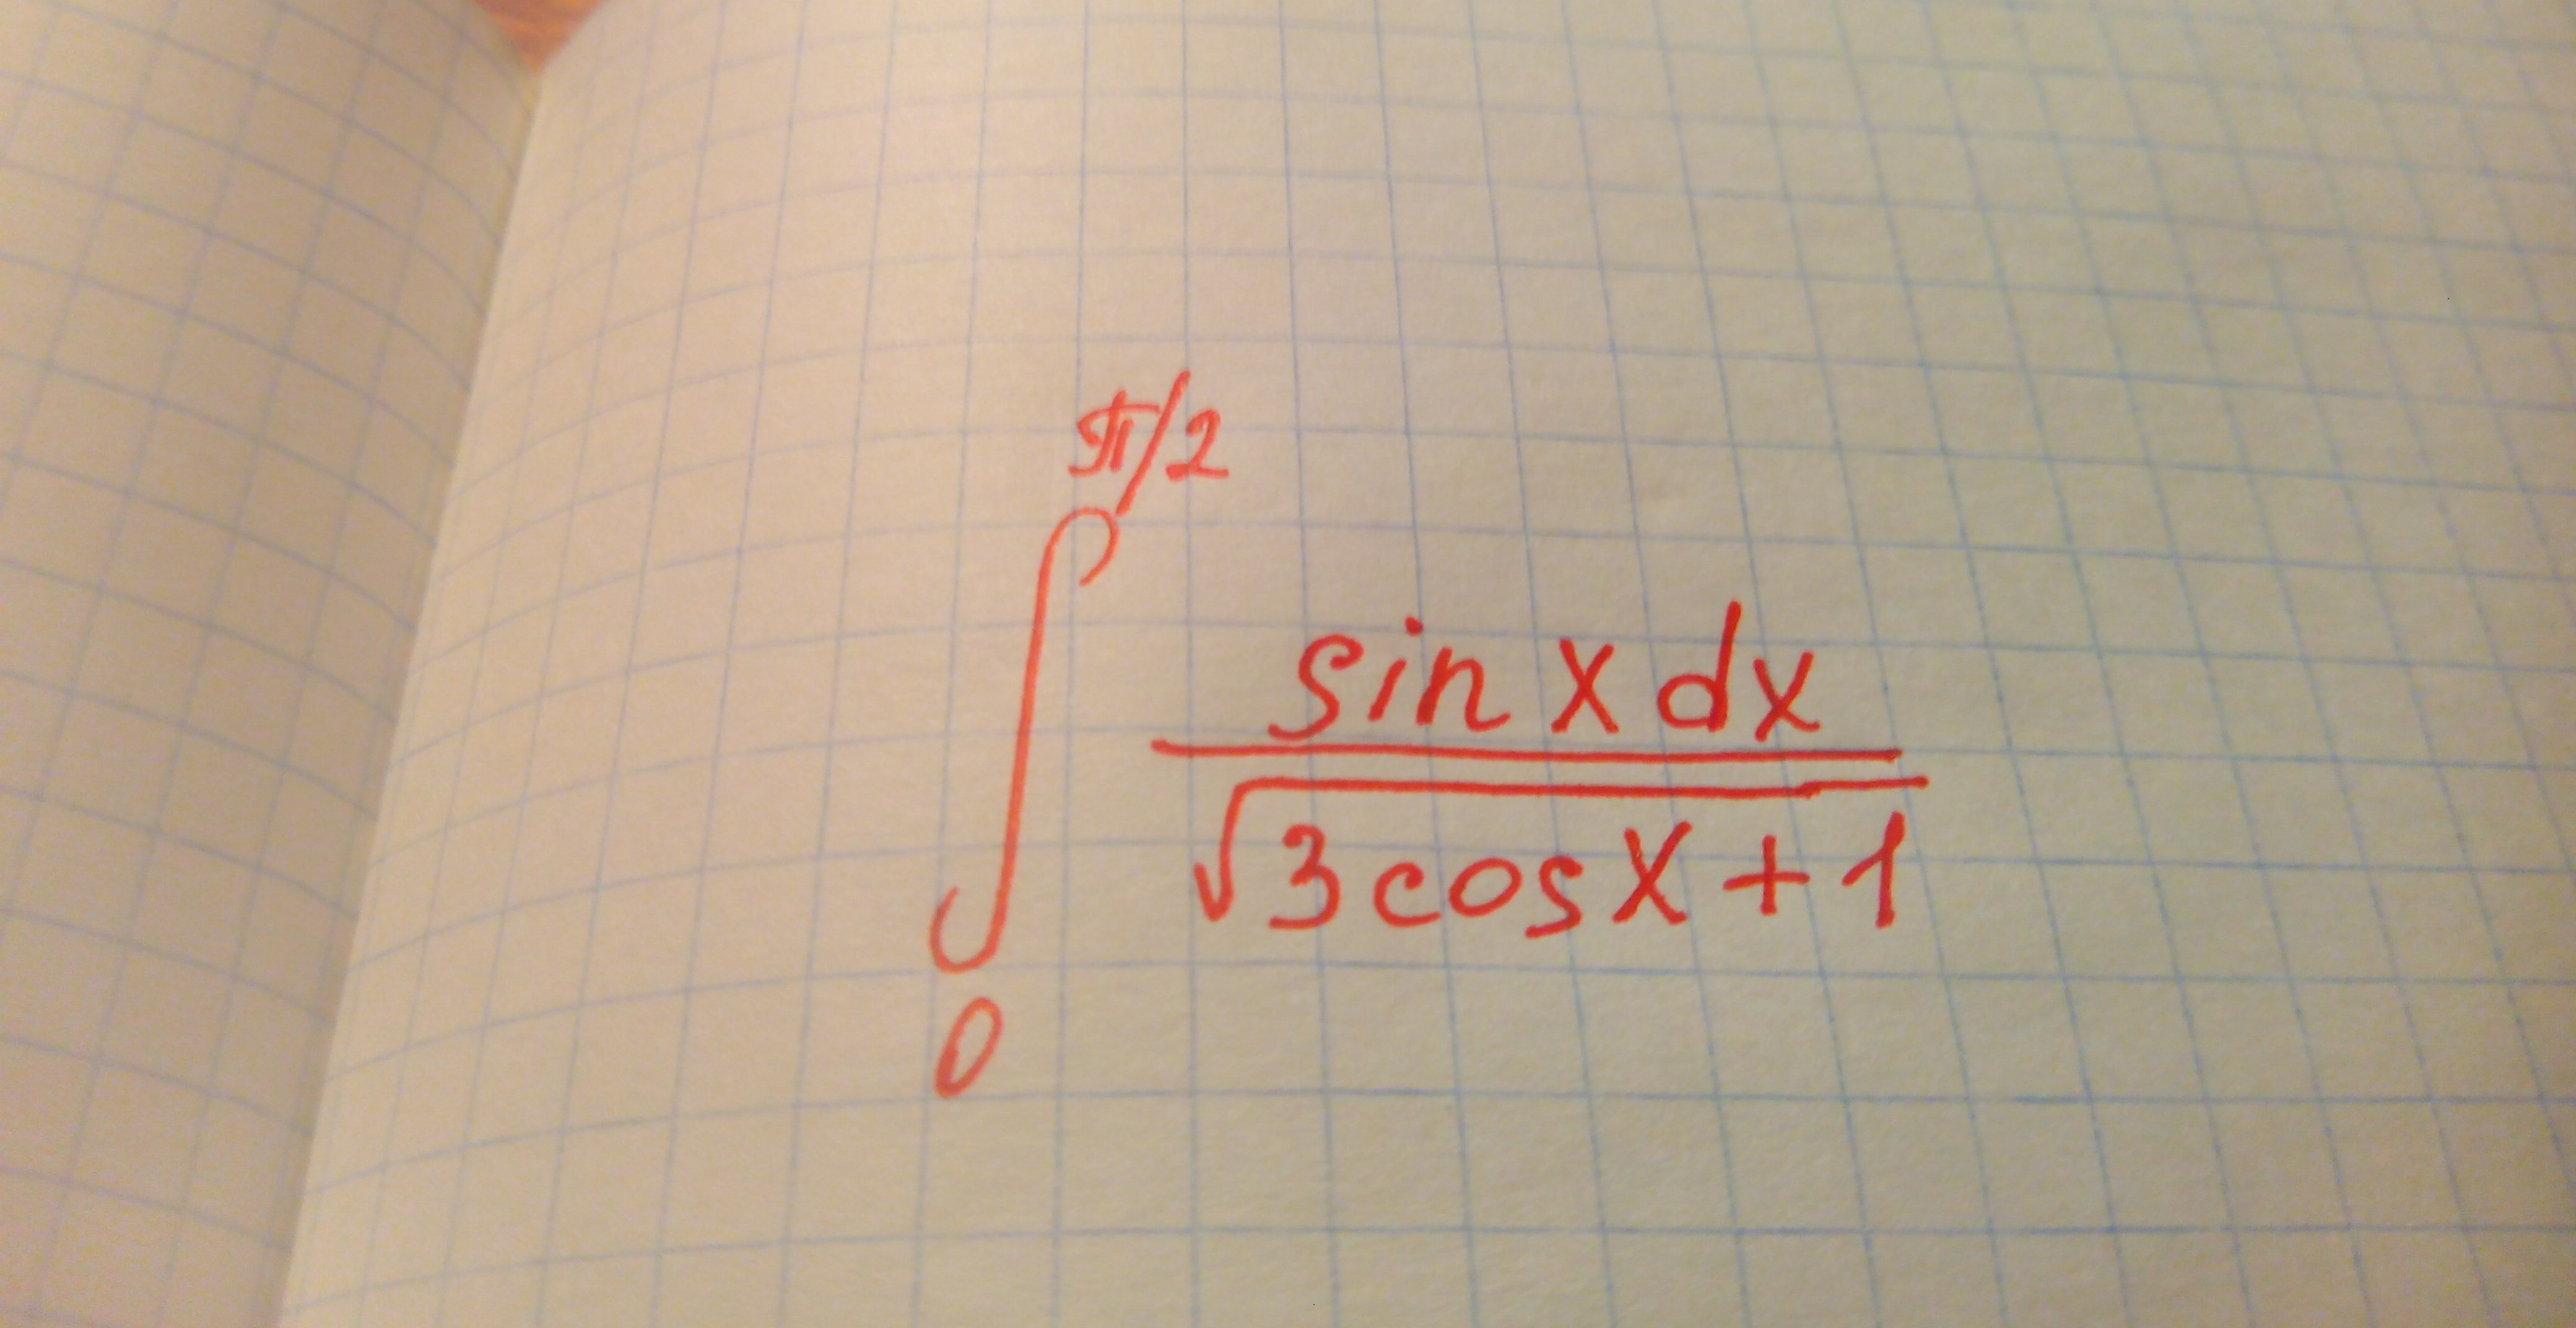 π/2
∫
sin x dx
√3cosx + 1
0